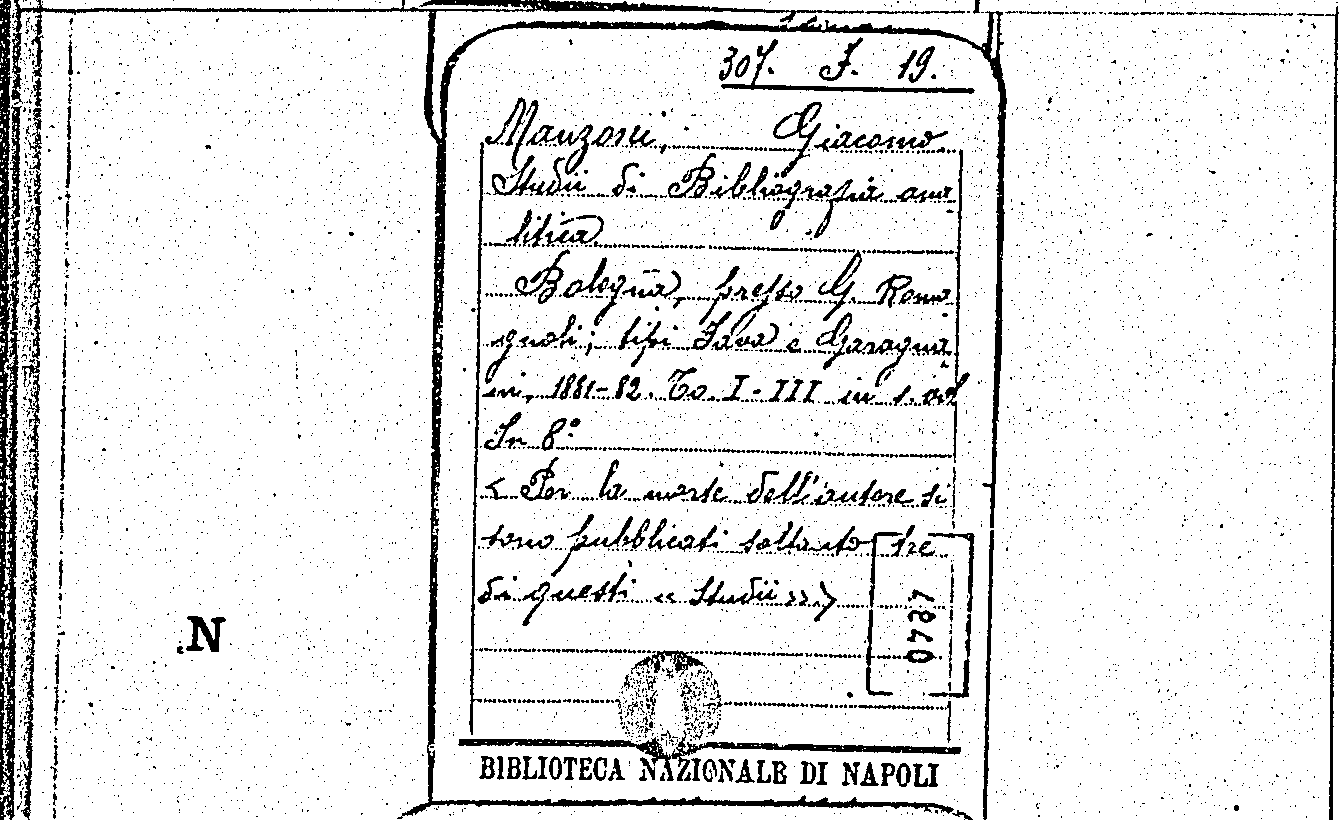 307. J. 19.
Manzoni, Giacomo.
Studii di Bibliografia ana
litica.
Bologna, presso G. Roma
gnoli; tipi Fava e Garagna
ni, 1881-82. To. I-III in 1. vol
In 8.°
< Per la morte dell'autore si
sono pubblicati soltanto tre
di questi « Studii »>
0487
N
BIBLIOTECA NAZIONALE DI NAPOLI